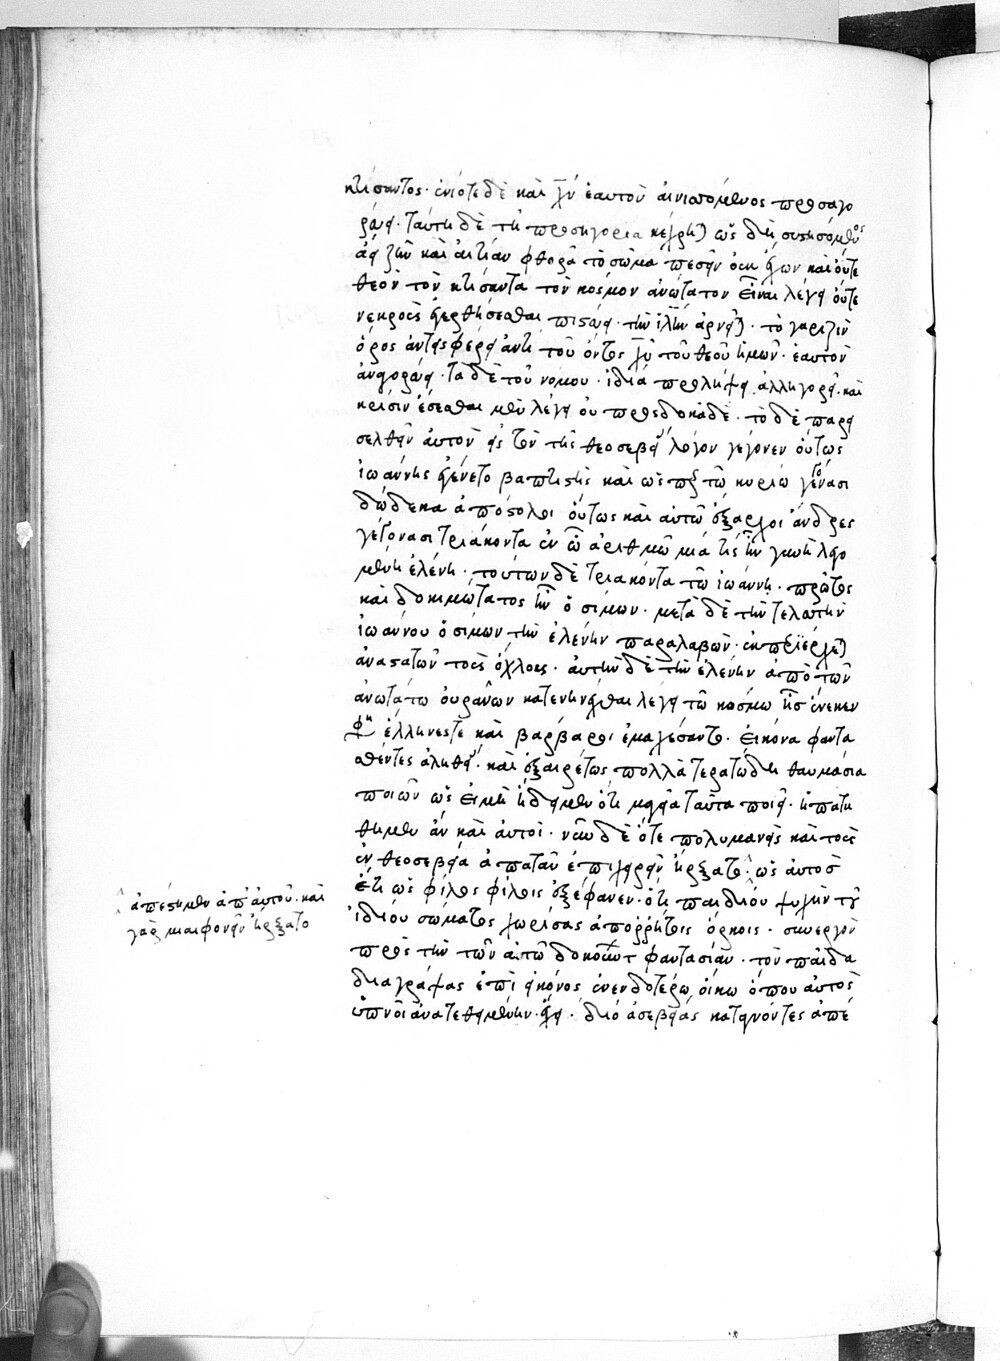 κτίσαντος· ἐνίοτε δὲ καὶ χν ἑαυτὸν αἰνισσόμενος προσαγο
ρεύει· ταύτη δὲ τῇ προσηγορία κέχρηται ὡς δὴ συστησόμενος
ἀεὶ ζῆν καὶ αἰτίαν φθορᾶς τὸ σῶμα πεσεῖν οὐκ ἔχων καὶ οὔτε
θεὸν τὸν κτίσαντα τὸν κόσμον ἀνώτατον εἶναι λέγει οὔτε
νεκροὺς ἐγερθήσεσθαι πιστεύει· τὴν ἱλὴμ ἀρνεῖται· τὸ γαριζὶν
ὄρος ἀντεισφέρει ἀντὶ τοῦ ὄντος χυ τοῦ θεοῦ ἡμῶν· ἑαυτὸν
ἀναγορεύει· τὰ δὲ τοῦ νόμου· ἰδία προλήψει ἀλληγορεῖ· καὶ
κρίσιν ἔσεσθαι μὲν λέγει οὐ προσδοκᾶ δέ· τὸ δὲ παρει
σελθεῖν αὐτὸν εἰς τὸν τῆς θεοσεβείας λόγον γέγονεν οὕτως
ἰωάννης ἐγένετο βαπτιστὴς καὶ ὡσπερ τῶ κυρίω γεγόνασι
δώδεκα ἀπόστολοι οὕτως καὶ αὐτῶ ἔξαρχοι ἄνδρες
γεγόνασι τριάκοντα ἐν ᾧ ἀριθμῶ μιά τις ἦν γυνὴ λεγο
μένη ἑλένη· τούτων δὲ τριάκοντα τῶ ἰωάννη· πρῶτος
καὶ δοκιμώτατος ἦν ὁ σίμων· μετὰ δὲ τὴν τελευτὴν
ἰωάννου ὁ σίμων τὴν ἑλένην παραλαβὼν· ἐκπεριέρχεται
ἀναστατῶν τοὺς ὄχλους· αὐτὴν δὲ τὴν ἑλένην ἀπὸ τῶν
ἀνωτάτω οὐρανῶν κατενηνέχθαι λέγει τῶ κόσμω ἧς ἕνεκεν
φη ἕλληνές τε καὶ βάρβαροι ἐμαχέσαντο· εἰκόνα φαντα
σθέντες ἀληθείας· καὶ ἐξαιρέτως πολλὰ τερατώδη θαυμάσια
ποιῶν ὡς εἰ μὴ ᾔδειμεν ὅτι μαγεία ταῦτα ποιεῖ· ἠπατή
θημεν ἂν καὶ αὐτοί· νῦν δὲ ὅτε πολυμανὴς καὶ τοὺς
ἐν θεοσεβεία ἀπατᾶν ἐπιχειρεῖν ἤρξατο· ὡς αὐτὸς
ἔτι ὡς φίλος φίλοις ἐξέφανεν· ὅτι παιδίου ψυχὴν τοῦ
ἰδίου σώματος χωρίσας ἀπορρήτοις ὅρκοις· συνεργὸν
πρὸς τὴν τῶν αὐτῶ δοκούντων φαντασίαν· τὸν παῖδα
διαγράψας ἐπὶ εἰκόνος ἐν ἐνδοτέρω οἴκω ὅπου αὐτὸς
ὑπνοῖ ἀνατεθειμένην ἔχει· διὸ ἀσεβείας καταγνόντες ἀπέ
ἀπέστημεν ἀπ' αὐτοῦ· καὶ
γὰρ μιαιφονεῖν ἤρξατο